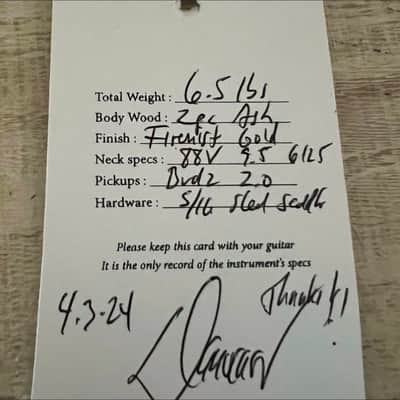 Total Weight : 6.5 lbs
Body Wood : 2pc Ash
Finish : Firemist Gold
Neck specs : 88V 9.5 6125
Pickups : 2.0
Hardware : 5/16 Steel Saddle
Please keep this card with your guitar
It is the only record of the instrument's specs
4.3.24
Thanks!